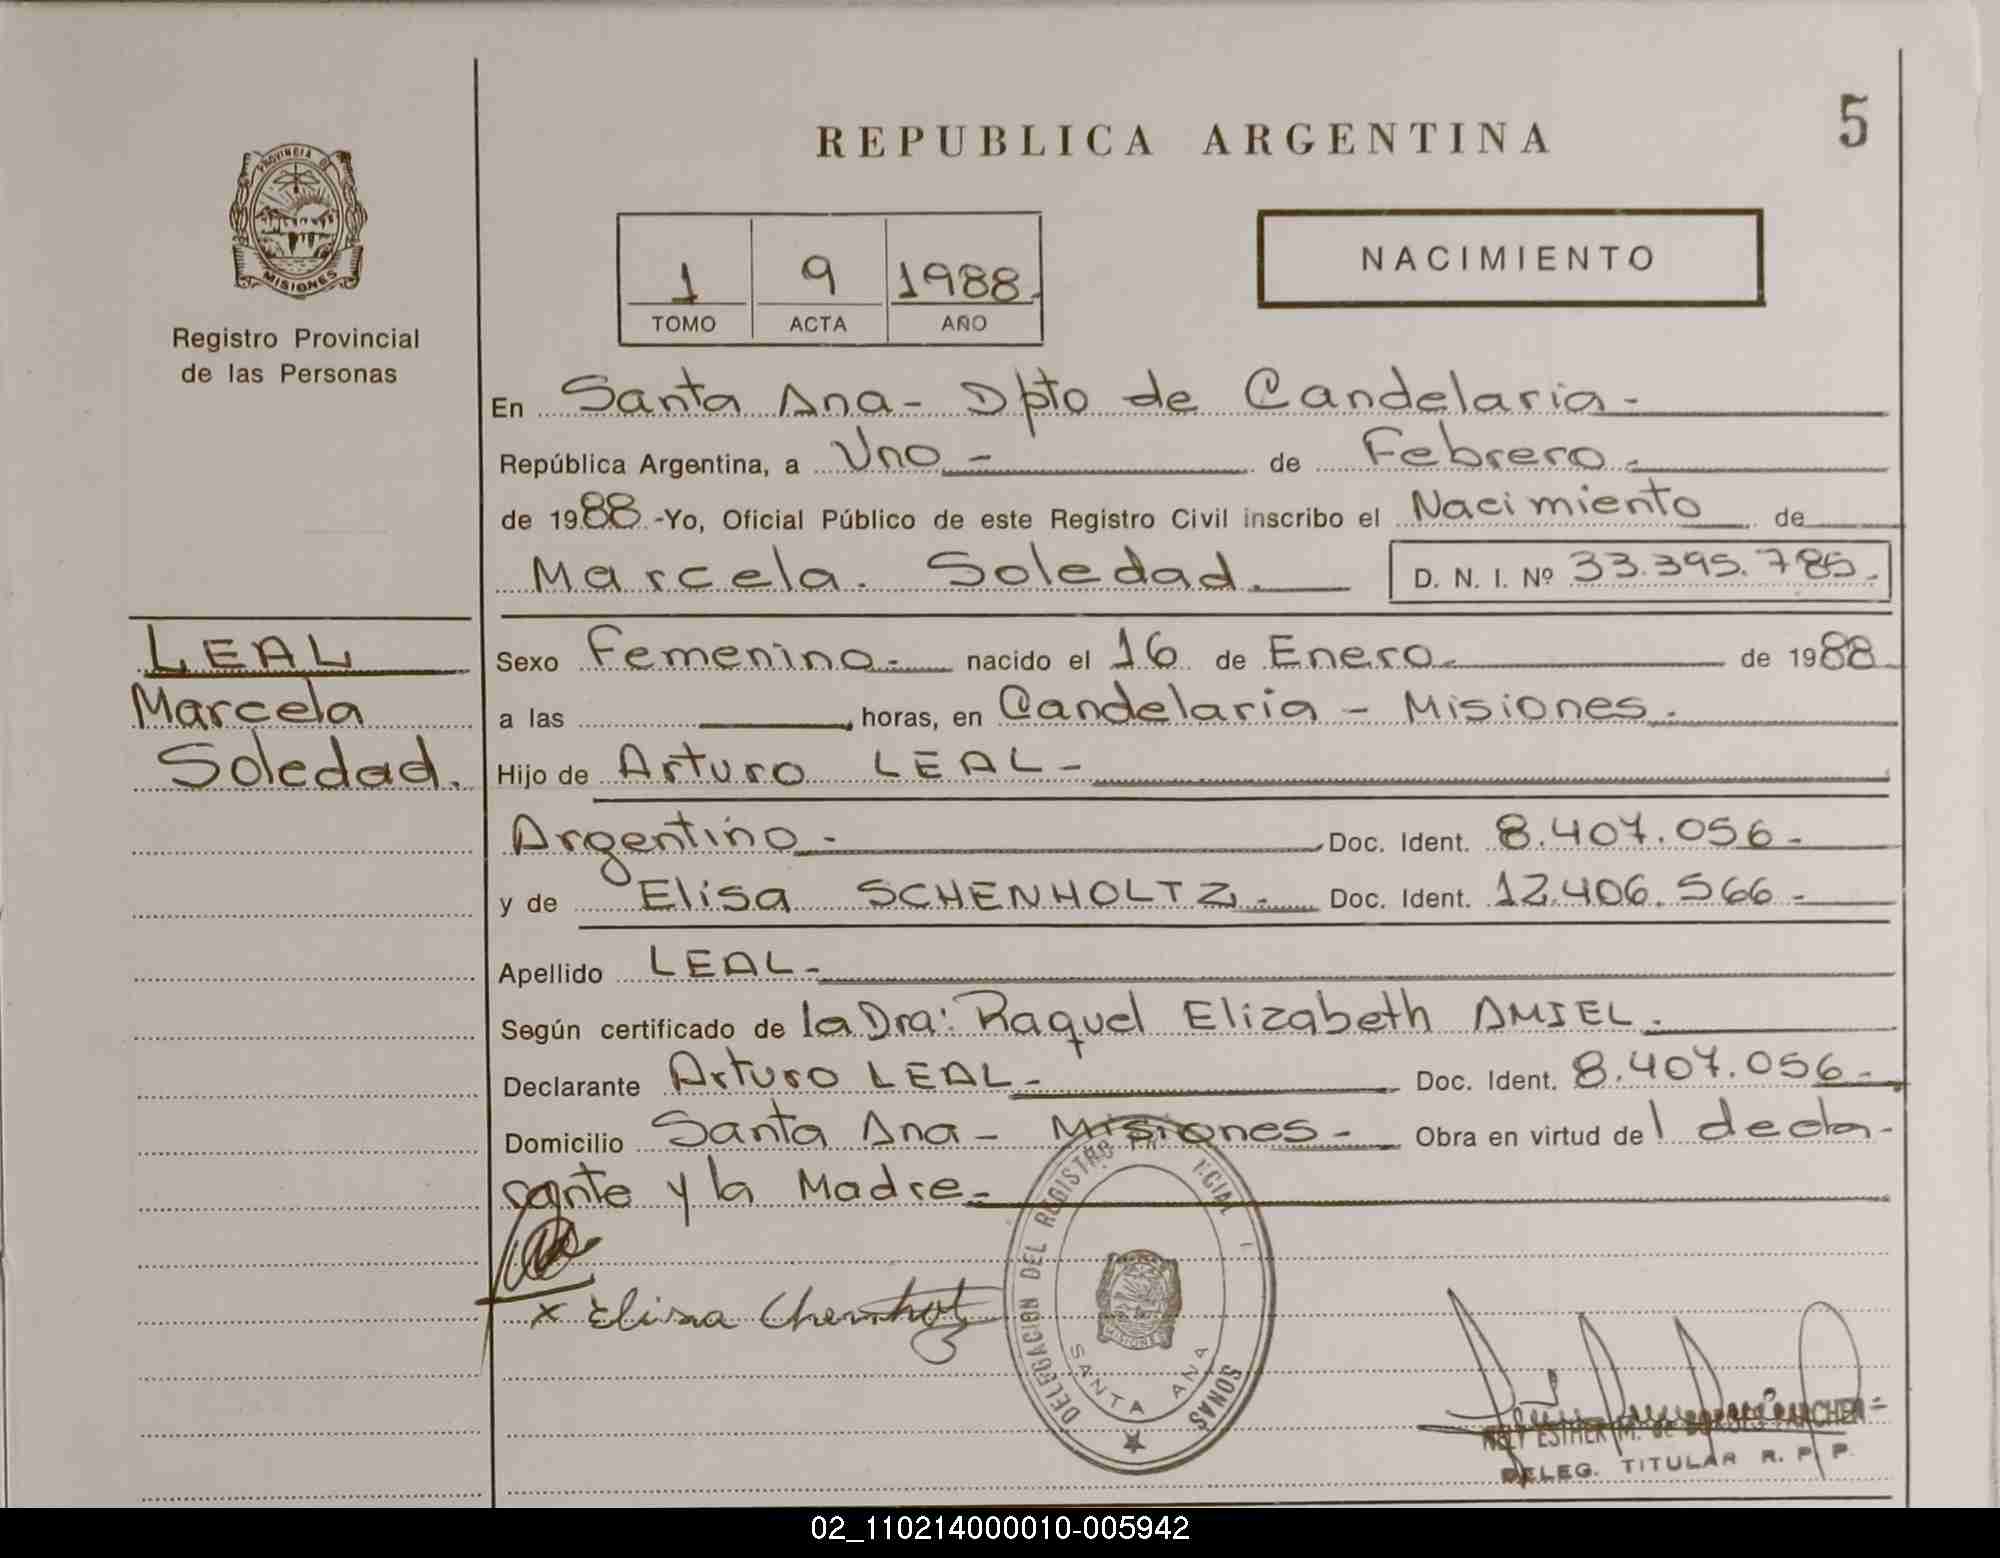 5
REPUBLICA ARGENTINA
PROVINCIA DE
MISIONES
Registro Provincial
de las Personas
1 9 1988
TOMO ACTA AÑO
NACIMIENTO
En Santa Ana - Dpto de Candelaria -
República Argentina, a Uno - de Febrero -
de 1988 -Yo, Oficial Público de este Registro Civil inscribo el Nacimiento de
Marcela Soledad. D. N. I. Nº 33.395.785.
LEAL
Marcela
Soledad.
Sexo Femenino - nacido el 16 de Enero de 1988
a las horas, en Candelaria - Misiones.
Hijo de Arturo LEAL -
Argentino - Doc. Ident. 8.407.056 -
y de Elisa SCHENHOLTZ - Doc. Ident. 12.406.566 -
Apellido LEAL -
Según certificado de la Dra: Raquel Elizabeth AMIEL.
Declarante Arturo LEAL - Doc. Ident. 8.407.056 -
Domicilio Santa Ana - Misiones - Obra en virtud del decla-
rante y la Madre -
x Elisa
DELEGACION DEL REGISTRO
SANTA ANA
ESTHER M. de
DELEG. TITULAR R. P. P.
02_110214000010-005942